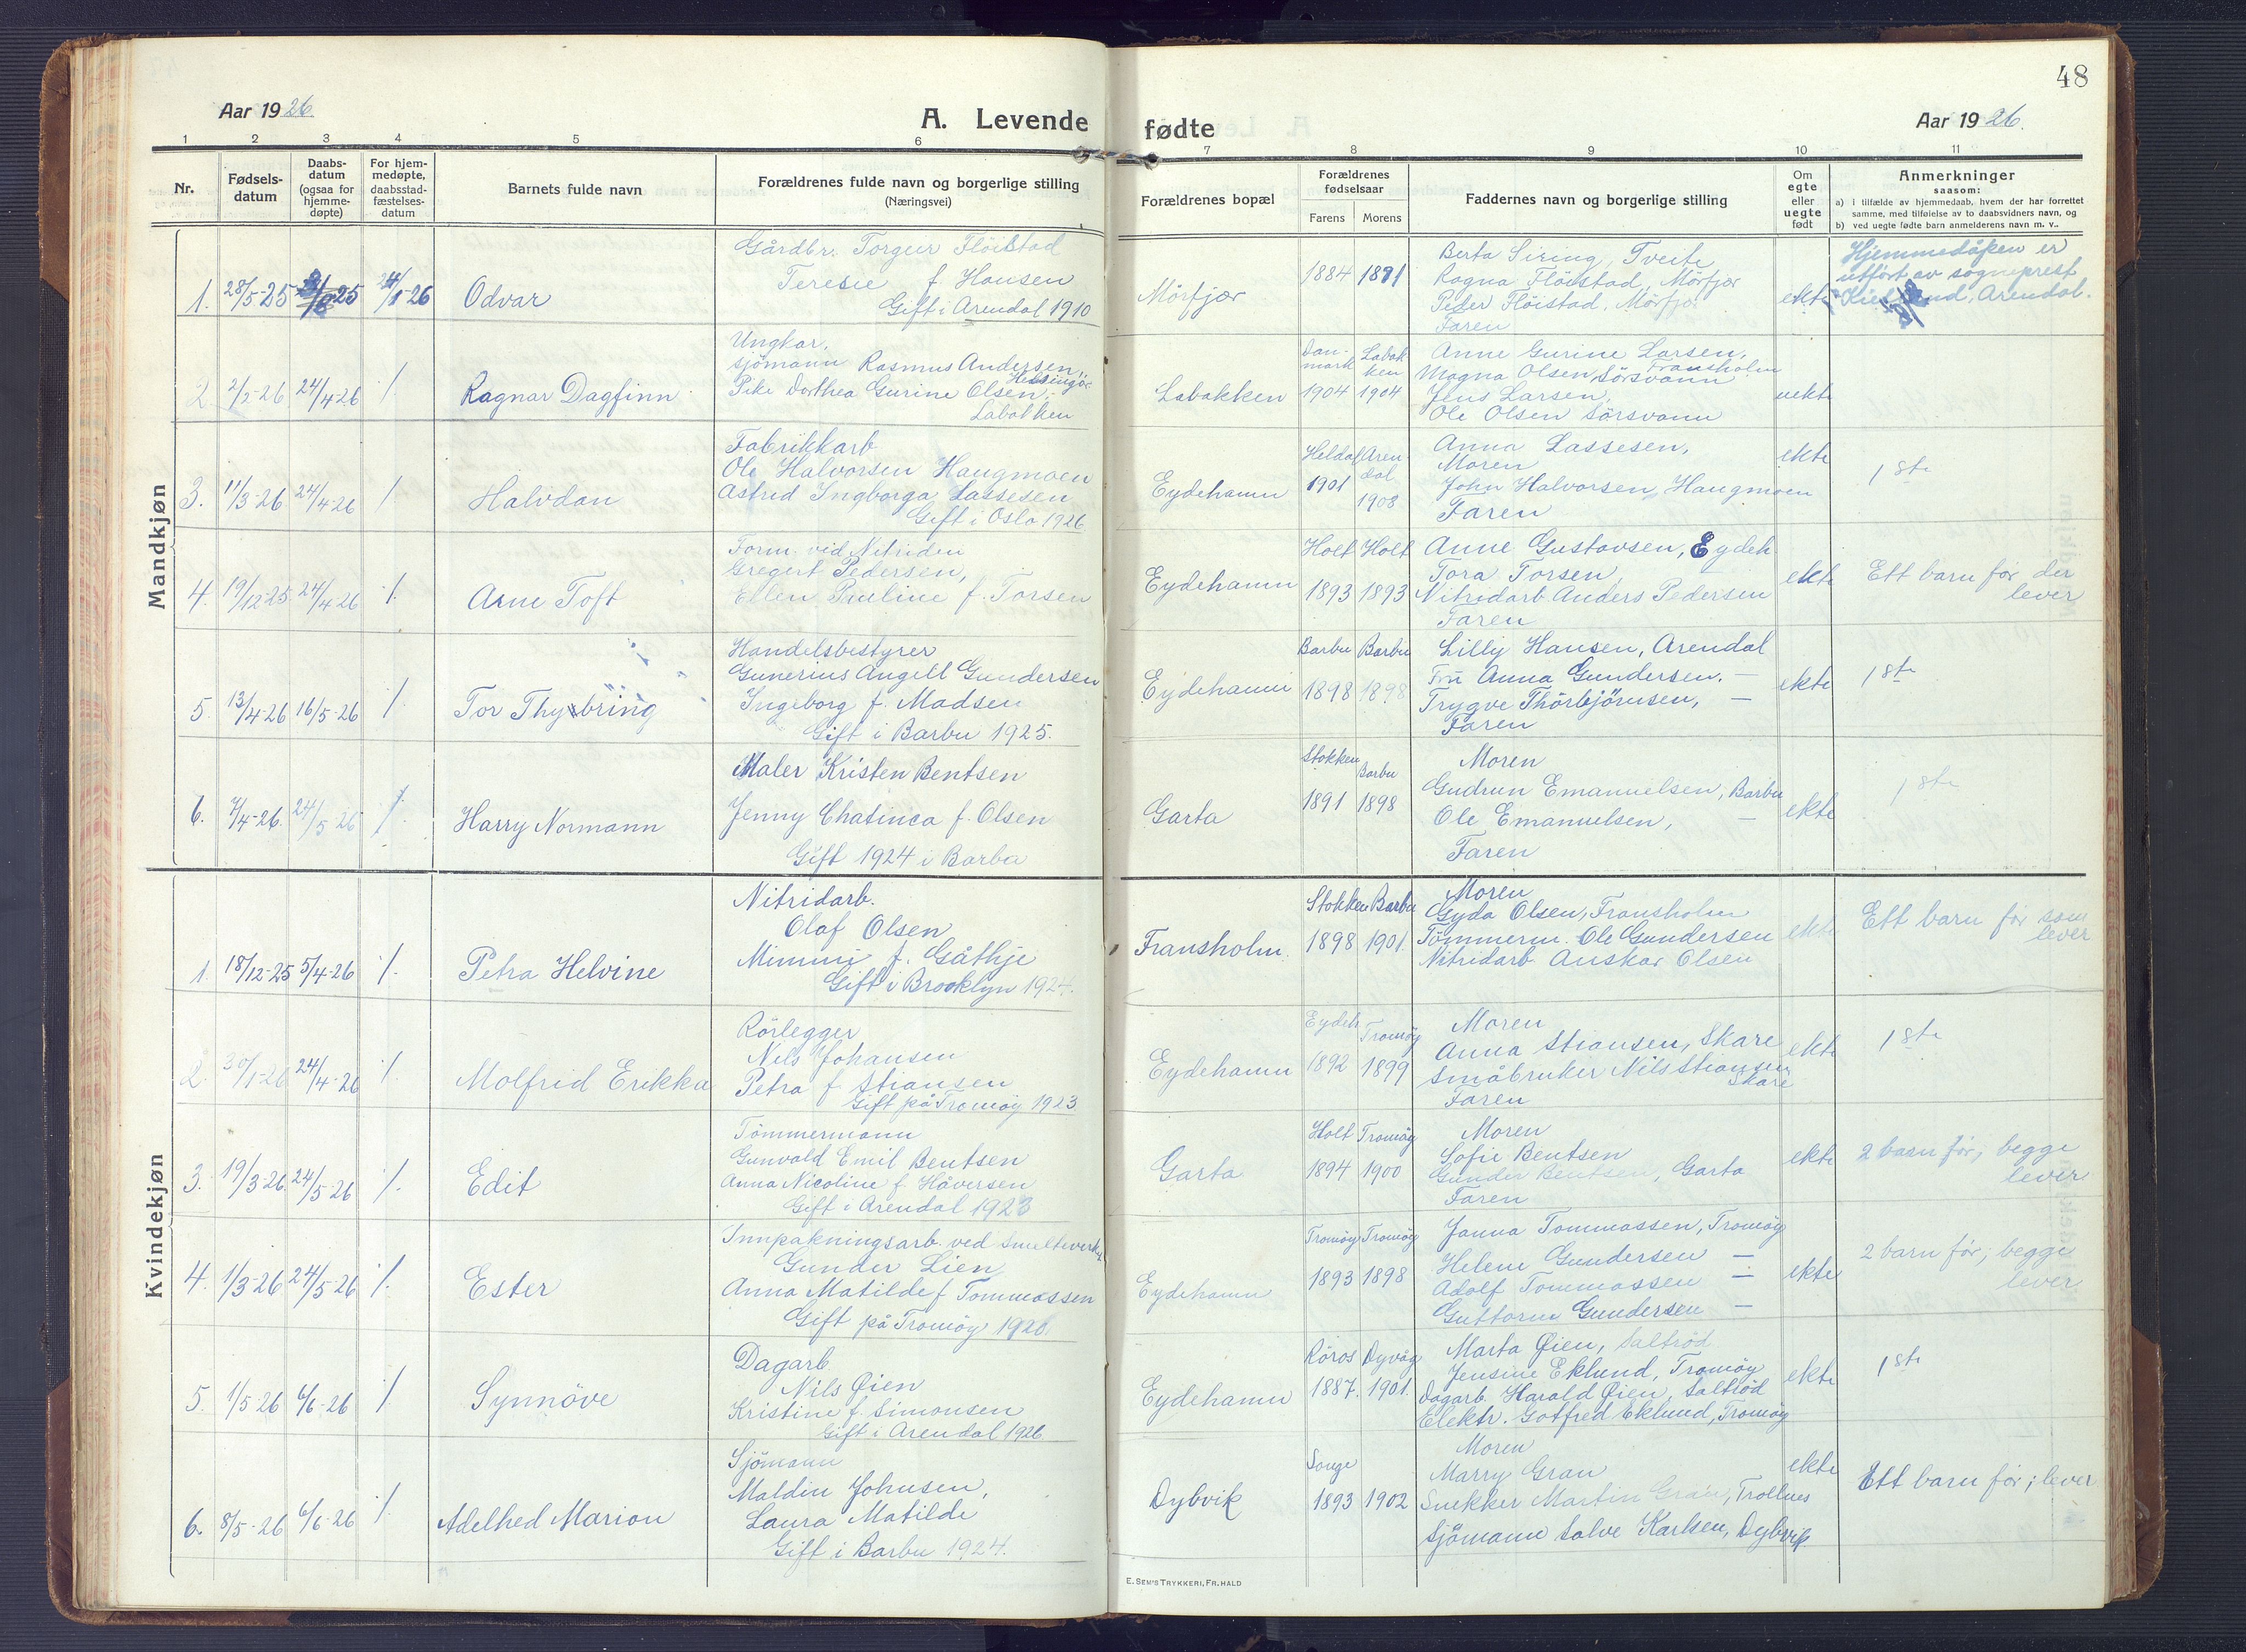 48
Aar 1926.
A. Levende fødte
Aar 1926.
1 2 3 4 5 6 7 8 9 10 11
Nr.
Fødsels-
datum
Daabs-
datum
(ogsaa for
hjemme-
døpte)
For hjem-
medøpte,
daabsstad-
fæstelses-
datum
Barnets fulde navn
Forældrenes fulde navn og borgerlige stilling
(Næringsvei)
Forældrenes bopæl
Forældrenes
fødselsaar
Farens Morens
Faddernes navn og borgerlige stilling
Om
egte
eller
uegte
født
Anmerkninger
saasom:
a) i tilfælde av hjemmedaab, hvem der har forrettet
samme, med tilføielse av to daabsvidners navn, og
b) ved uegte fødte barn anmelderens navn m. v..
Mandkjøn
1. 28/5-25 25 24/5-26 Odvar
Gårdbr. Torger Flöistad
Teresie f. Hansen
Gift i Arendal 1910
Mörfjær
1884 1891
Berta Siring, Tveite
Ragna Flöistad, Mörfjær
Peder Flöistad, Mörfjær
Faren
ekte
Hjemmedåpen er
utfört av sogneprest
Arendal.
2. 2/2-26 24/4-26 /. Ragnar Dagfinn
Ungkar,
sjömann Rasmus Andersen,
Helsingör
Pike Dorthea Gurine Olsen,
Labakken
Labakken
Dan-
mark
1904
Labak
ken
1904
Anne Gurine Larsen,
Fransholm
Magna Olsen, Sörsvann
Jens Larsen,
Ole Olsen Sörsvann
uekte
3. 11/3-26 24/4-26 /. Halvdan
Fabrikkarb
Ole Halvorsen Haugmoen
Astrid Ingborga Lassesen
Gift i Oslo 1926
Eydehamn
1901
Aren
dal
1908
Anna Lassesen,
Moren
John Halvorsen Haugmoen
Faren
ekte
1ste
4. 19/12-25 24/4-26 /. Arne Toft
Form. vid Nitriden
Gregert Pedersen,
Ellen Pauline f. Torsen
Eydehamn
Holt Holt
1893 1893
Anne Gustavsen, Eydeh.
Tora Torsen,
Nitridarb. Anders Pedersen
Faren
ekte
Ett barn för der
lever
5. 13/4-26 16/5-26 /. Tor Thybring
Handelsbestyrer
Gunerius Angell Gundersen
Ingeborg f. Madsen
Gift i Barbu 1925.
Eydehamn
Barbu Barbu
1898 1898
Lilly Hansen, Arendal
Fru Anna Gundersen. —
Trygve Thörbjörnsen, —
Faren
ekte
1ste
6. 7/4-26. 24/5-26 /. Harry Normann
Maler Kristen Bentsen
Jenny Chatinca f. Olsen
Gift 1924 i Barbu
Garta
Stokken Barbu
1891 1898
Moren
Gudrun Emanuelsen, Barbu
Ole Emanuelsen, —
Faren
ekte
1ste
Kvindekjøn
1. 18/12-25 5/4-26 /. Petra Helvine
Nitridarb.
Olaf Olsen
Mimmi f. Gåthje
Gift i Brooklyn 1924.
Fransholm.
Stokken Barbu
1898 1901.
Moren
Gyda Olsen, Fransholm
Tömmerm. Ole Gundersen
Nitridarb. Anskar Olsen
ekte
Ett barn för som
lever
2. 30/1-26 24/4-26 /. Molfrid Erikka
Rörlegger
Nils Johansen
Petra f. Stiansen
Gift på Tromöy 1923
Eydehamn
Eydeh Tromöy
1892 1899
Moren
Anna Stiansen, Skare
Småbruker Nils Stiansen
Skare
Faren
ekte
1ste
3. 19/3-26 24/5-26 /. Edit
Tömmermann
Gunvald Emil Bentsen
Anna Nicoline f. Håversen
Gift i Arendal 1923
Garta
Holt Tromöy
1894 1900
Moren
Sofie Bentsen
Gunder Bentsen, Garta
Faren
ekte
2 barn för, begge
lever
4. 1/3-26 24/5-26 /. Ester
Innpakningsarb. ved Smelteverk.
Gunder Lien
Anna Matilde f Tommassen
Gift på Tromöy 1920.
Eydehamn
Tromöy Tromöy
1893 1898
Janna Tommassen, Tromöy
Helene Gundersen —
Adolf Tommassen —
Guttorm Gundersen —
ekte
2 barn för; begge
lever
5. 1/5-26 6/6-26 /. Synnöve
Dagarb.
Nils Øien
Kristine f. Simonsen
Gift i Arendal 1926
Eydehamn
Röros Dyvåg
1887. 1901.
Marta Øien, Saltröd
Jensine Eklund, Tromöy
Dagarb. Harald Øien, Saltröd
Elektr. Gotfred Eklund, Tromöy
ekte
1ste
6. 8/5-26 6/6-26 /. Adelhed Marion
Sjömann
Maldin Johnsen,
Laura Matilde
Gift i Barbu 1924.
Dybvik
Songe
1893 1902
Moren
Marry Gran
Snekker Martin Gran, Trollnes
Sjömann Salve Karlsen, Dybvik
ekte
Ett barn för; lever
E. SEM'S TRYKKERI, FR. HALD